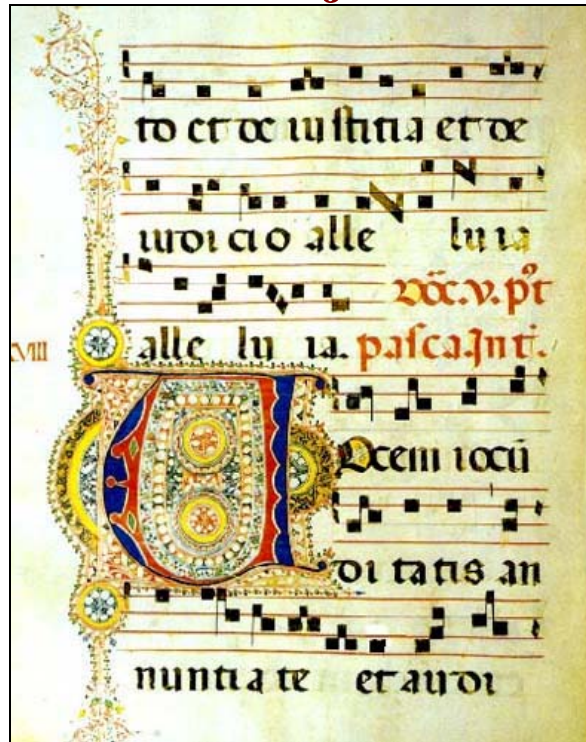 to et de iustitia et de
iudi ci o alle lu ia
Dōc. v. pꝰt
alle lu ia. pasca. Int.
XVIII
Vocem iocū
di tatis an
nuntia te et audi